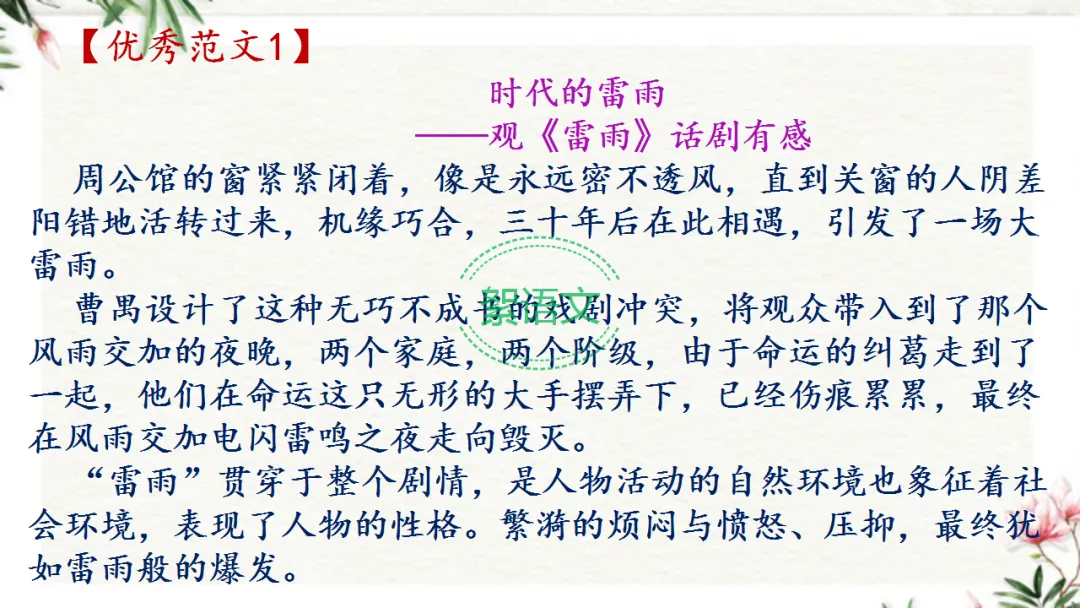 【优秀范文1】
时代的雷雨
——观《雷雨》话剧有感
周公馆的窗紧紧闭着，像是永远密不透风，直到关窗的人阴差
阳错地活转过来，机缘巧合，三十年后在此相遇，引发了一场大
雷雨。
曹禺设计了这种无巧不成书的戏剧冲突，将观众带入到了那个
风雨交加的夜晚，两个家庭，两个阶级，由于命运的纠葛走到了
一起，他们在命运这只无形的大手摆弄下，已经伤痕累累，最终
在风雨交加电闪雷鸣之夜走向毁灭。
“雷雨”贯穿于整个剧情，是人物活动的自然环境也象征着社
会环境，表现了人物的性格。繁漪的烦闷与愤怒、压抑，最终犹
如雷雨般的爆发。
絮语文